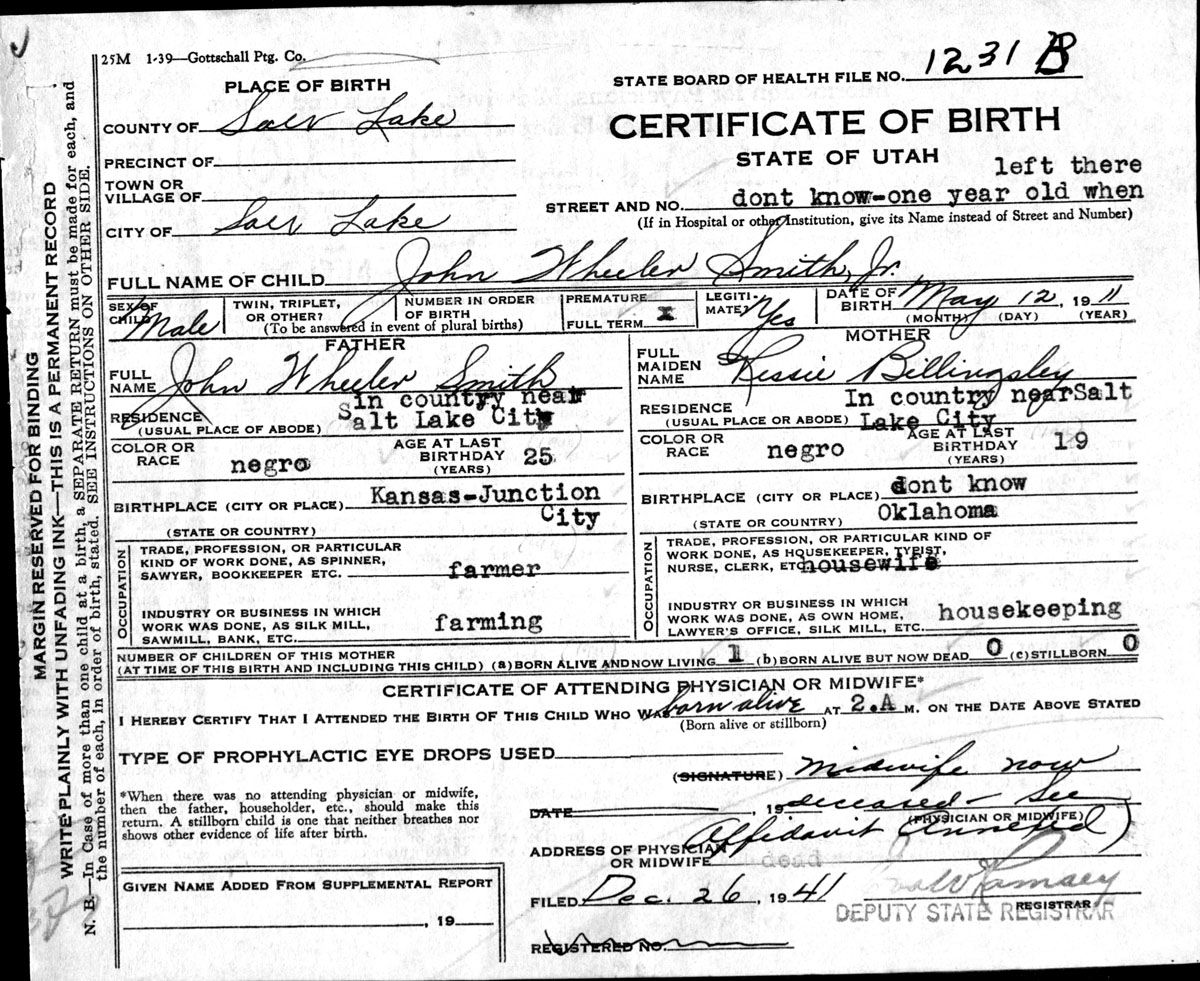 25M 1-39—Gottschall Ptg. Co.
STATE BOARD OF HEALTH FILE NO. 1231 B
PLACE OF BIRTH
COUNTY OF Salt Lake
CERTIFICATE OF BIRTH
STATE OF UTAH
PRECINCT OF
TOWN OR
VILLAGE OF
CITY OF Salt Lake
left there
STREET AND NO. dont know-one year old when
(If in Hospital or other Institution, give its Name instead of Street and Number)
FULL NAME OF CHILD John Wheeler Smith, Jr.
SEX OF CHILD Male
TWIN, TRIPLET, OR OTHER?
NUMBER IN ORDER OF BIRTH
(To be answered in event of plural births)
PREMATURE
FULL TERM x
LEGITIMATE? Yes
DATE OF BIRTH May 12, 1911
(MONTH) (DAY) (YEAR)
FATHER
FULL NAME John Wheeler Smith
RESIDENCE In country near
(USUAL PLACE OF ABODE) Salt Lake City
COLOR OR RACE negro
AGE AT LAST BIRTHDAY (YEARS) 25
BIRTHPLACE (CITY OR PLACE) Kansas-Junction
City
(STATE OR COUNTRY)
OCCUPATION
TRADE, PROFESSION, OR PARTICULAR
KIND OF WORK DONE, AS SPINNER,
SAWYER, BOOKKEEPER ETC. farmer
INDUSTRY OR BUSINESS IN WHICH
WORK WAS DONE, AS SILK MILL,
SAWMILL, BANK, ETC. farming
MOTHER
FULL MAIDEN NAME Kessie Billingsley
RESIDENCE In country nearSalt
(USUAL PLACE OR ABODE) Lake City
COLOR OR RACE negro
AGE AT LAST BIRTHDAY (YEARS) 19
BIRTHPLACE (CITY OR PLACE) dont know
(STATE OR COUNTRY) Oklahoma
OCCUPATION
TRADE, PROFESSION, OR PARTICULAR KIND OF
WORK DONE, AS HOUSEKEEPER, TYPIST,
NURSE, CLERK, ETC. housewife
INDUSTRY OR BUSINESS IN WHICH
WORK WAS DONE, AS OWN HOME,
LAWYER'S OFFICE, SILK MILL, ETC. housekeeping
NUMBER OF CHILDREN OF THIS MOTHER
(AT TIME OF THIS BIRTH AND INCLUDING THIS CHILD) (a) BORN ALIVE AND NOW LIVING 1 (b) BORN ALIVE BUT NOW DEAD 0 (c) STILLBORN 0
CERTIFICATE OF ATTENDING PHYSICIAN OR MIDWIFE*
I HEREBY CERTIFY THAT I ATTENDED THE BIRTH OF THIS CHILD WHO WAS born alive AT 2.A M. ON THE DATE ABOVE STATED
(Born alive or stillborn)
TYPE OF PROPHYLACTIC EYE DROPS USED
*When there was no attending physician or midwife,
then the father, householder, etc., should make this
return. A stillborn child is one that neither breathes nor
shows other evidence of life after birth.
(SIGNATURE) Midwife now
DATE , 19 deceased – See
(PHYSICIAN OR MIDWIFE)
Affidavit Annexed)
ADDRESS OF PHYSICIAN
OR MIDWIFE dead
GIVEN NAME ADDED FROM SUPPLEMENTAL REPORT
, 19
FILED Dec. 26, 1941
Ramsey
REGISTRAR
DEPUTY STATE REGISTRAR
REGISTERED NO.
MARGIN RESERVED FOR BINDING
WRITE PLAINLY WITH UNFADING INK—THIS IS A PERMANENT RECORD
N. B.—In Case of more than one child at a birth, a SEPARATE RETURN must be made for each, and
the number of each, in order of birth, stated. SEE INSTRUCTIONS ON OTHER SIDE.